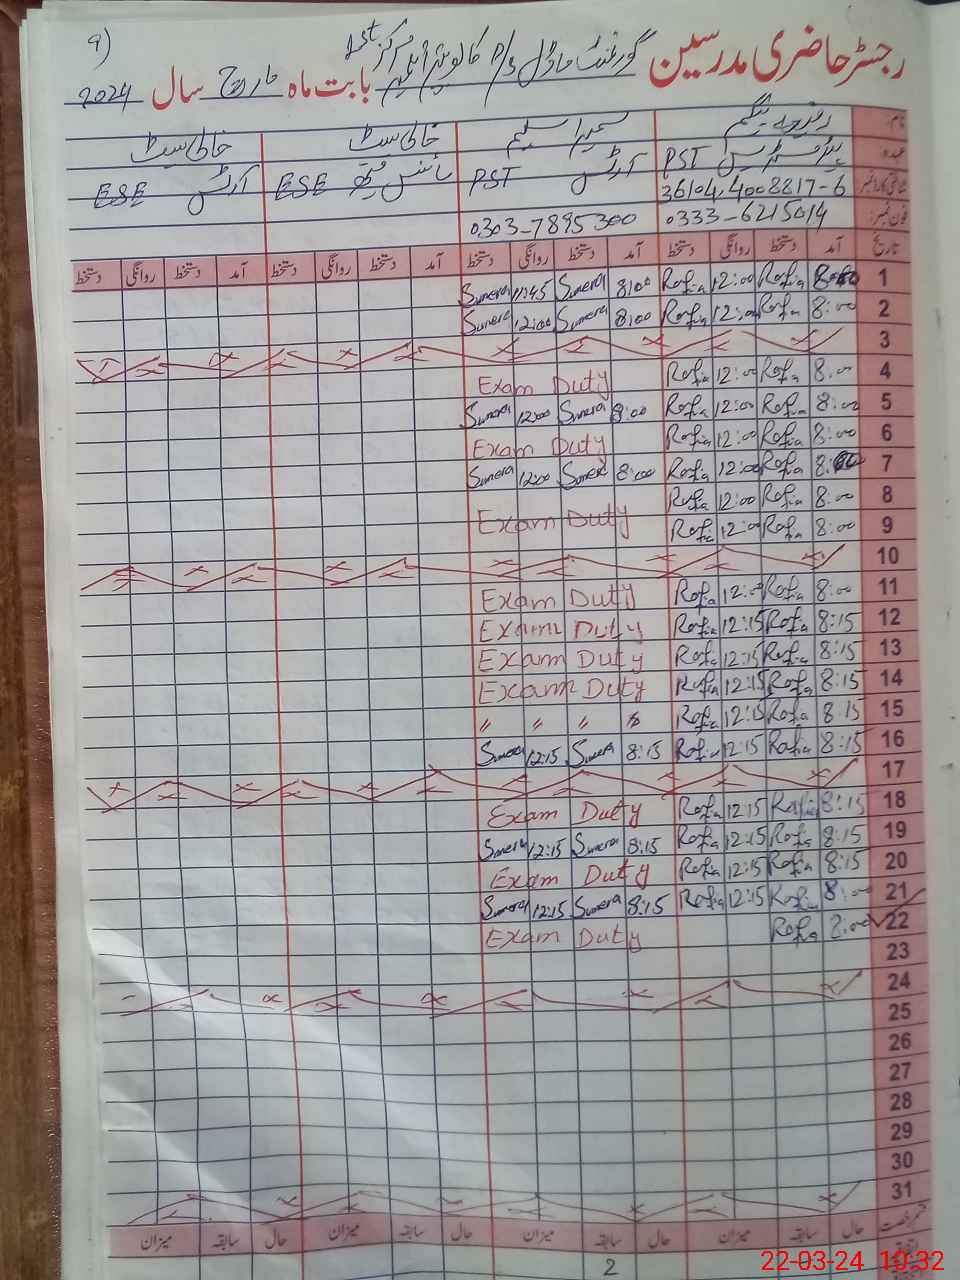 9)
رجسٹر حاضری مدرسین گورنمنٹ ماڈل P/S 1st مرکز
بابت ماہ مارچ سال 2024
نام: رفیعہ بیگم سمیرا سلیم خالی سیٹ خالی سیٹ
عہدہ PST آرٹس PST ESE آرٹس ESE
شناختی کارڈ نمبر 36104,4008817-6
فون نمبر: 0333-6215014 0303-7895300
تاریخ آمد دستخط روانگی دستخط آمد دستخط روانگی دستخط آمد دستخط روانگی دستخط آمد دستخط روانگی دستخط
1 Rafia 12:00 Rafia 8:00 Sumera 11:45 Sumera
2 8:00 Rafia 12:00 Rafia 8:00 Sumera 12:00 Sumera
3
4 8:00 Rafia 12:00 Rafia Exam Duty
5 8:00 Rafia 12:00 Rafia 8:00 Sumera 12:00 Sumera
6 8:00 Rafia 12:00 Rafia Exam Duty
7 Rafia 12:00 Rafia 8:00 Sumera 12:00 Sumera
8 8:00 Rafia 12:00 Rafia
9 8:00 Rafia 12:00 Rafia Exam Duty
10
11 8:00 Rafia 12:00 Rafia Exam Duty
12 8:15 Rafia 12:15 Rafia Exam Duty
13 8:15 Rafia 12:15 Rafia Exam Duty
14 8:15 Rafia 12:15 Rafia Exam Duty
15 8:15 Rafia 12:15 Rafia " " " "
16 8:15 Rafia 12:15 Rafia 8:15 Sumera 12:15 Sumera
17
18 8:15 Rafia 12:15 Rafia Exam Duty
19 8:15 Rafia 12:15 Rafia 8:15 Sumera 12:15 Sumera
20 8:15 Rafia 12:15 Rafia Exam Duty
21 8:00 Rafia 12:15 Rafia 8:15 Sumera 12:15 Sumera
22 8:00 Rafia Exam Duty
23
24
25
26
27
28
29
30
31
حال سابقہ میزان حال سابقہ میزان حال سابقہ میزان حال سابقہ میزان
2
22-03-24 10:32